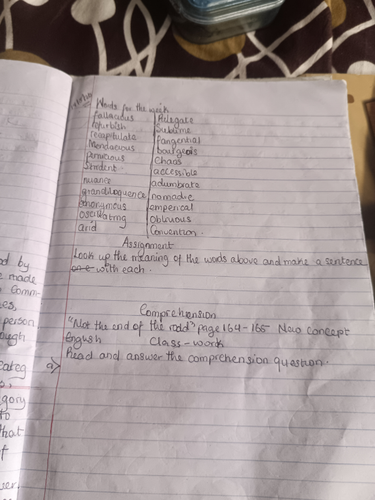 Words for the week
fallacious Relegate
refurbish Sublime
recapitulate Tangential
Mendacious bourgeois
pernicious Chaos
Strident accessible
nuance adumbrate
grandiloquence nomadic
eponymous emperical
oscillating Oblivous
arid Convention
Assignment
Look up the meaning of the words above and make a sentence
with each.
Comprehension
"Not the end of the" page 164-165 New Concept
English Class-work
a) Read and answer the comprehension question.
d by
made
Comm-
es,
person
ough
categ
gory
to
that
f